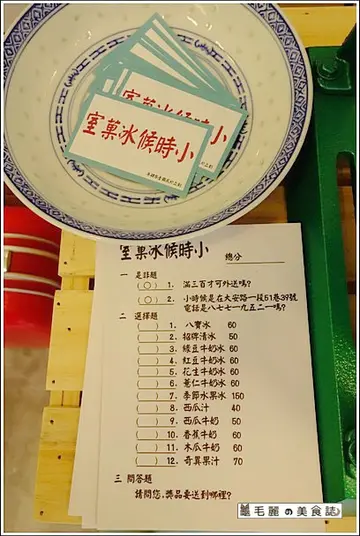 小時候冰菓室
小時候冰菓室
小時候冰菓室　總分
一 是話題
(○) 1. 滿三百才可外送嗎?
(○) 2. 小時候是在大安路一段51巷39號
電話是八七七一九五二一嗎?
二 選擇題
( ) 1. 八寶冰 60
( ) 2. 招牌清冰 50
( ) 3. 綠豆牛奶冰 60
( ) 4. 紅豆牛奶冰 60
( ) 5. 花生牛奶冰 60
( ) 6. 薏仁牛奶冰 60
( ) 7. 季節水果冰 150
( ) 8. 西瓜汁 40
( ) 9. 西瓜牛奶 50
( ) 10. 香蕉牛奶 60
( ) 11. 木瓜牛奶 60
( ) 12. 奇異果汁 70
三 問答題
請問您,獎品要送到哪裡?
毛麗の美食誌